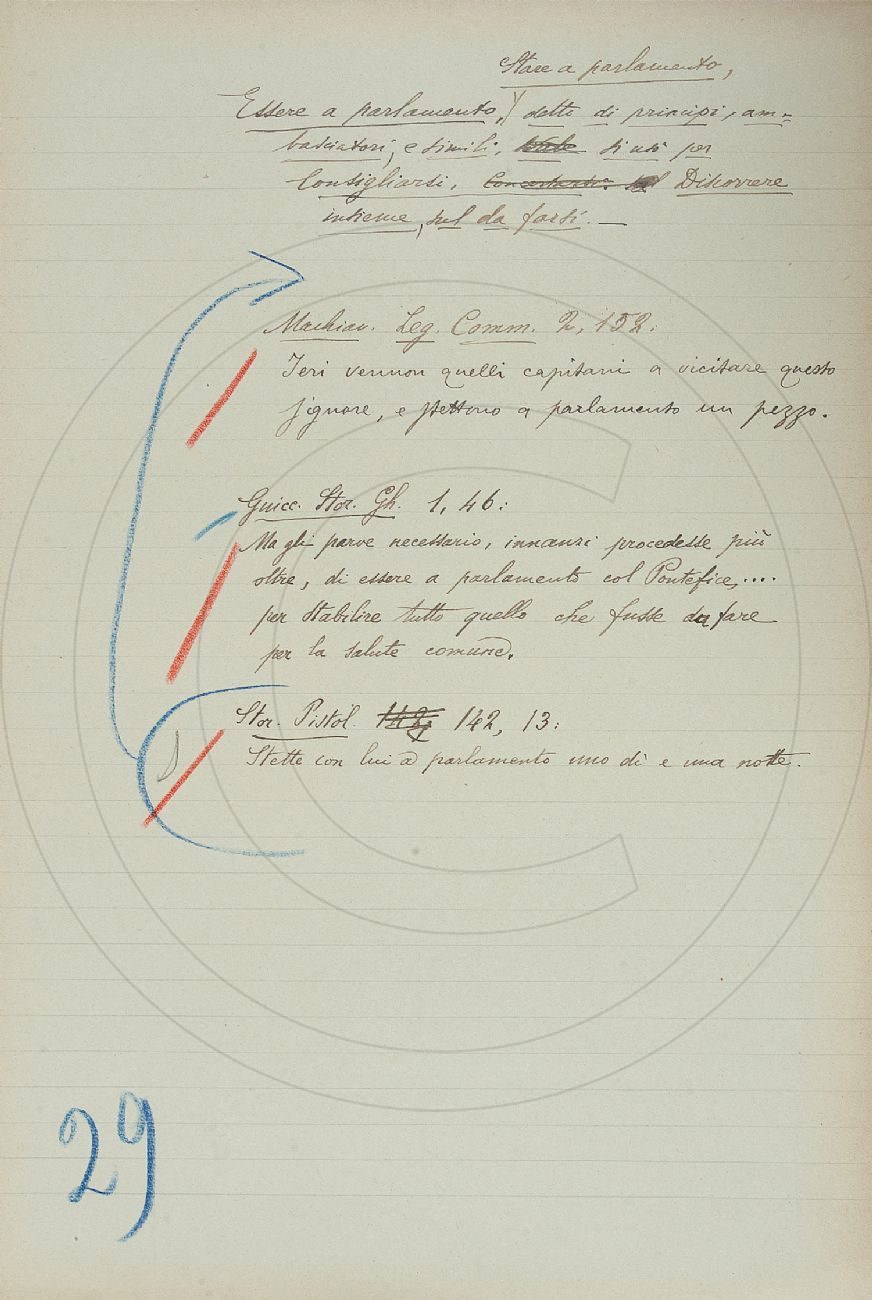 Stare a parlamento,
Essere a parlamento, detto di principi, am-
basciatori, e simili, vale si usò per
Consigliarsi, Discorrere
insieme, sul da farsi. —
Machiav. Leg. Comm. 2, 152:
Ieri vennon quelli capitani a vicitare questo
signore, e stettono a parlamento un pezzo.
Guicc. Stor. Gh. 1, 46:
Ma gli parve necessario, innanzi procedesse più
oltre, di essere a parlamento col Pontefice,....
per stabilire tutto quello che fusse da fare
per la salute comune.
Stor. Pistol. 142, 142, 13:
Stette con lui a parlamento uno dì e una notte.
29